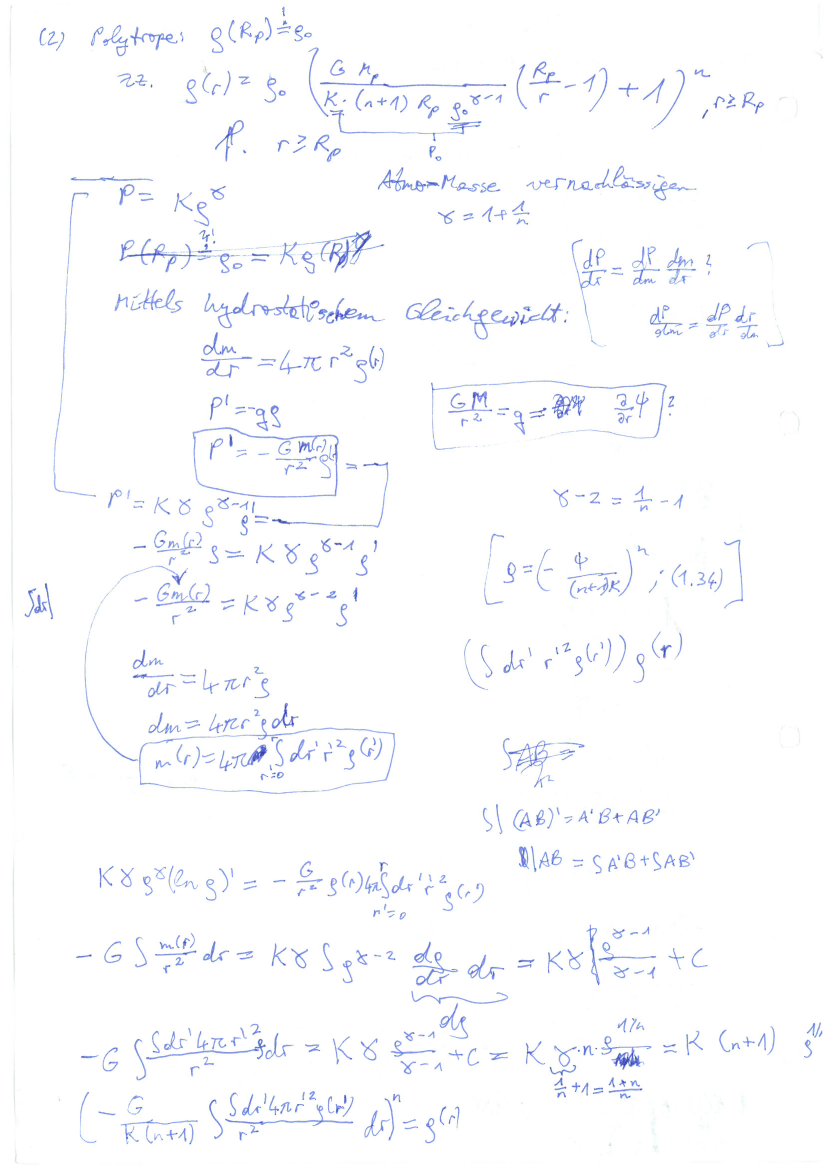 (2) Polytrope: ρ(R_p) =! ρ_0
zz. ρ(r) = ρ_0 ( G M_p / (K · (n+1) R_p ρ_0^{γ-1}) (R_p/r - 1) + 1 )^n , r ≥ R_p
P_0
r ≥ R_p
P = Kρ^γ
Atmo-Masse vernachlässigen
γ = 1 + 1/n
P(R_p) =! ρ_0 = Kρ(R_p)^γ
[ dP/dr = dP/dm dm/dr ?
dP/dm = dP/dr dr/dm ]
Mittels hydrostatischem Gleichgewicht:
dm/dr = 4πr²ρ(r)
P' = -gρ
GM/r² = g = ∂/∂r ψ ?
P' = - G m(r)/r² ρ(r) = -
P' = Kγρ^{γ-1} ρ' =
γ-2 = 1/n - 1
- Gm(r)/r² ρ = Kγρ^{γ-1} ρ'
[ ρ = (- ψ/((n+1)K))^n ; (1.34) ]
∫dr| - Gm(r)/r² = Kγρ^{γ-2} ρ'
(∫ dr' r'² ρ(r')) ρ(r)
dm/dr = 4πr²ρ
dm = 4πr²ρdr
m(r) = 4π ∫_{r'=0}^{r} dr' r'² ρ(r')
∫AB =
∫| (AB)' = A'B + AB'
|AB = ∫A'B + ∫AB'
Kγρ^γ(ln ρ)' = - G/r² ρ(r) 4π ∫_{r'=0}^{r} dr' r'² ρ(r')
-G ∫ m(r)/r² dr = Kγ ∫ρ^{γ-2} dρ/dr dr = Kγ ρ^{γ-1}/(γ-1) + C
dρ
-G ∫ (∫dr' 4πr'² ρ)/r² dr = Kγ ρ^{γ-1}/(γ-1) + C = K γ · n · ρ^{1/n} = K (n+1) ρ^{1/n}
1/n + 1 = (1+n)/n
( - G/(K(n+1)) ∫ (∫dr' 4πr'² ρ(r'))/r² dr )^n = ρ(r)